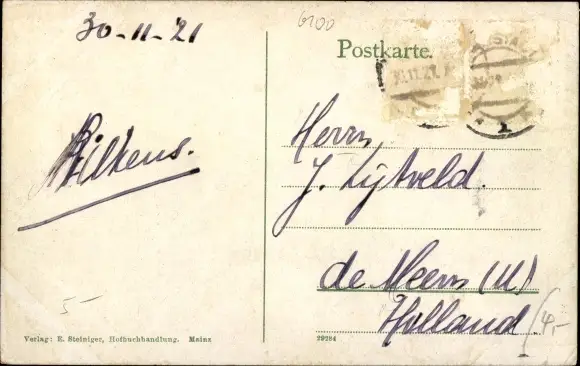 30-11-21
6200
Postkarte.
30.11.21
Wilkens.
Herrn
J. Lijtveld.
de Meern (U)
Holland
4,-
5-
Verlag: E. Steiniger, Hofbuchhandlung. Mainz
29284